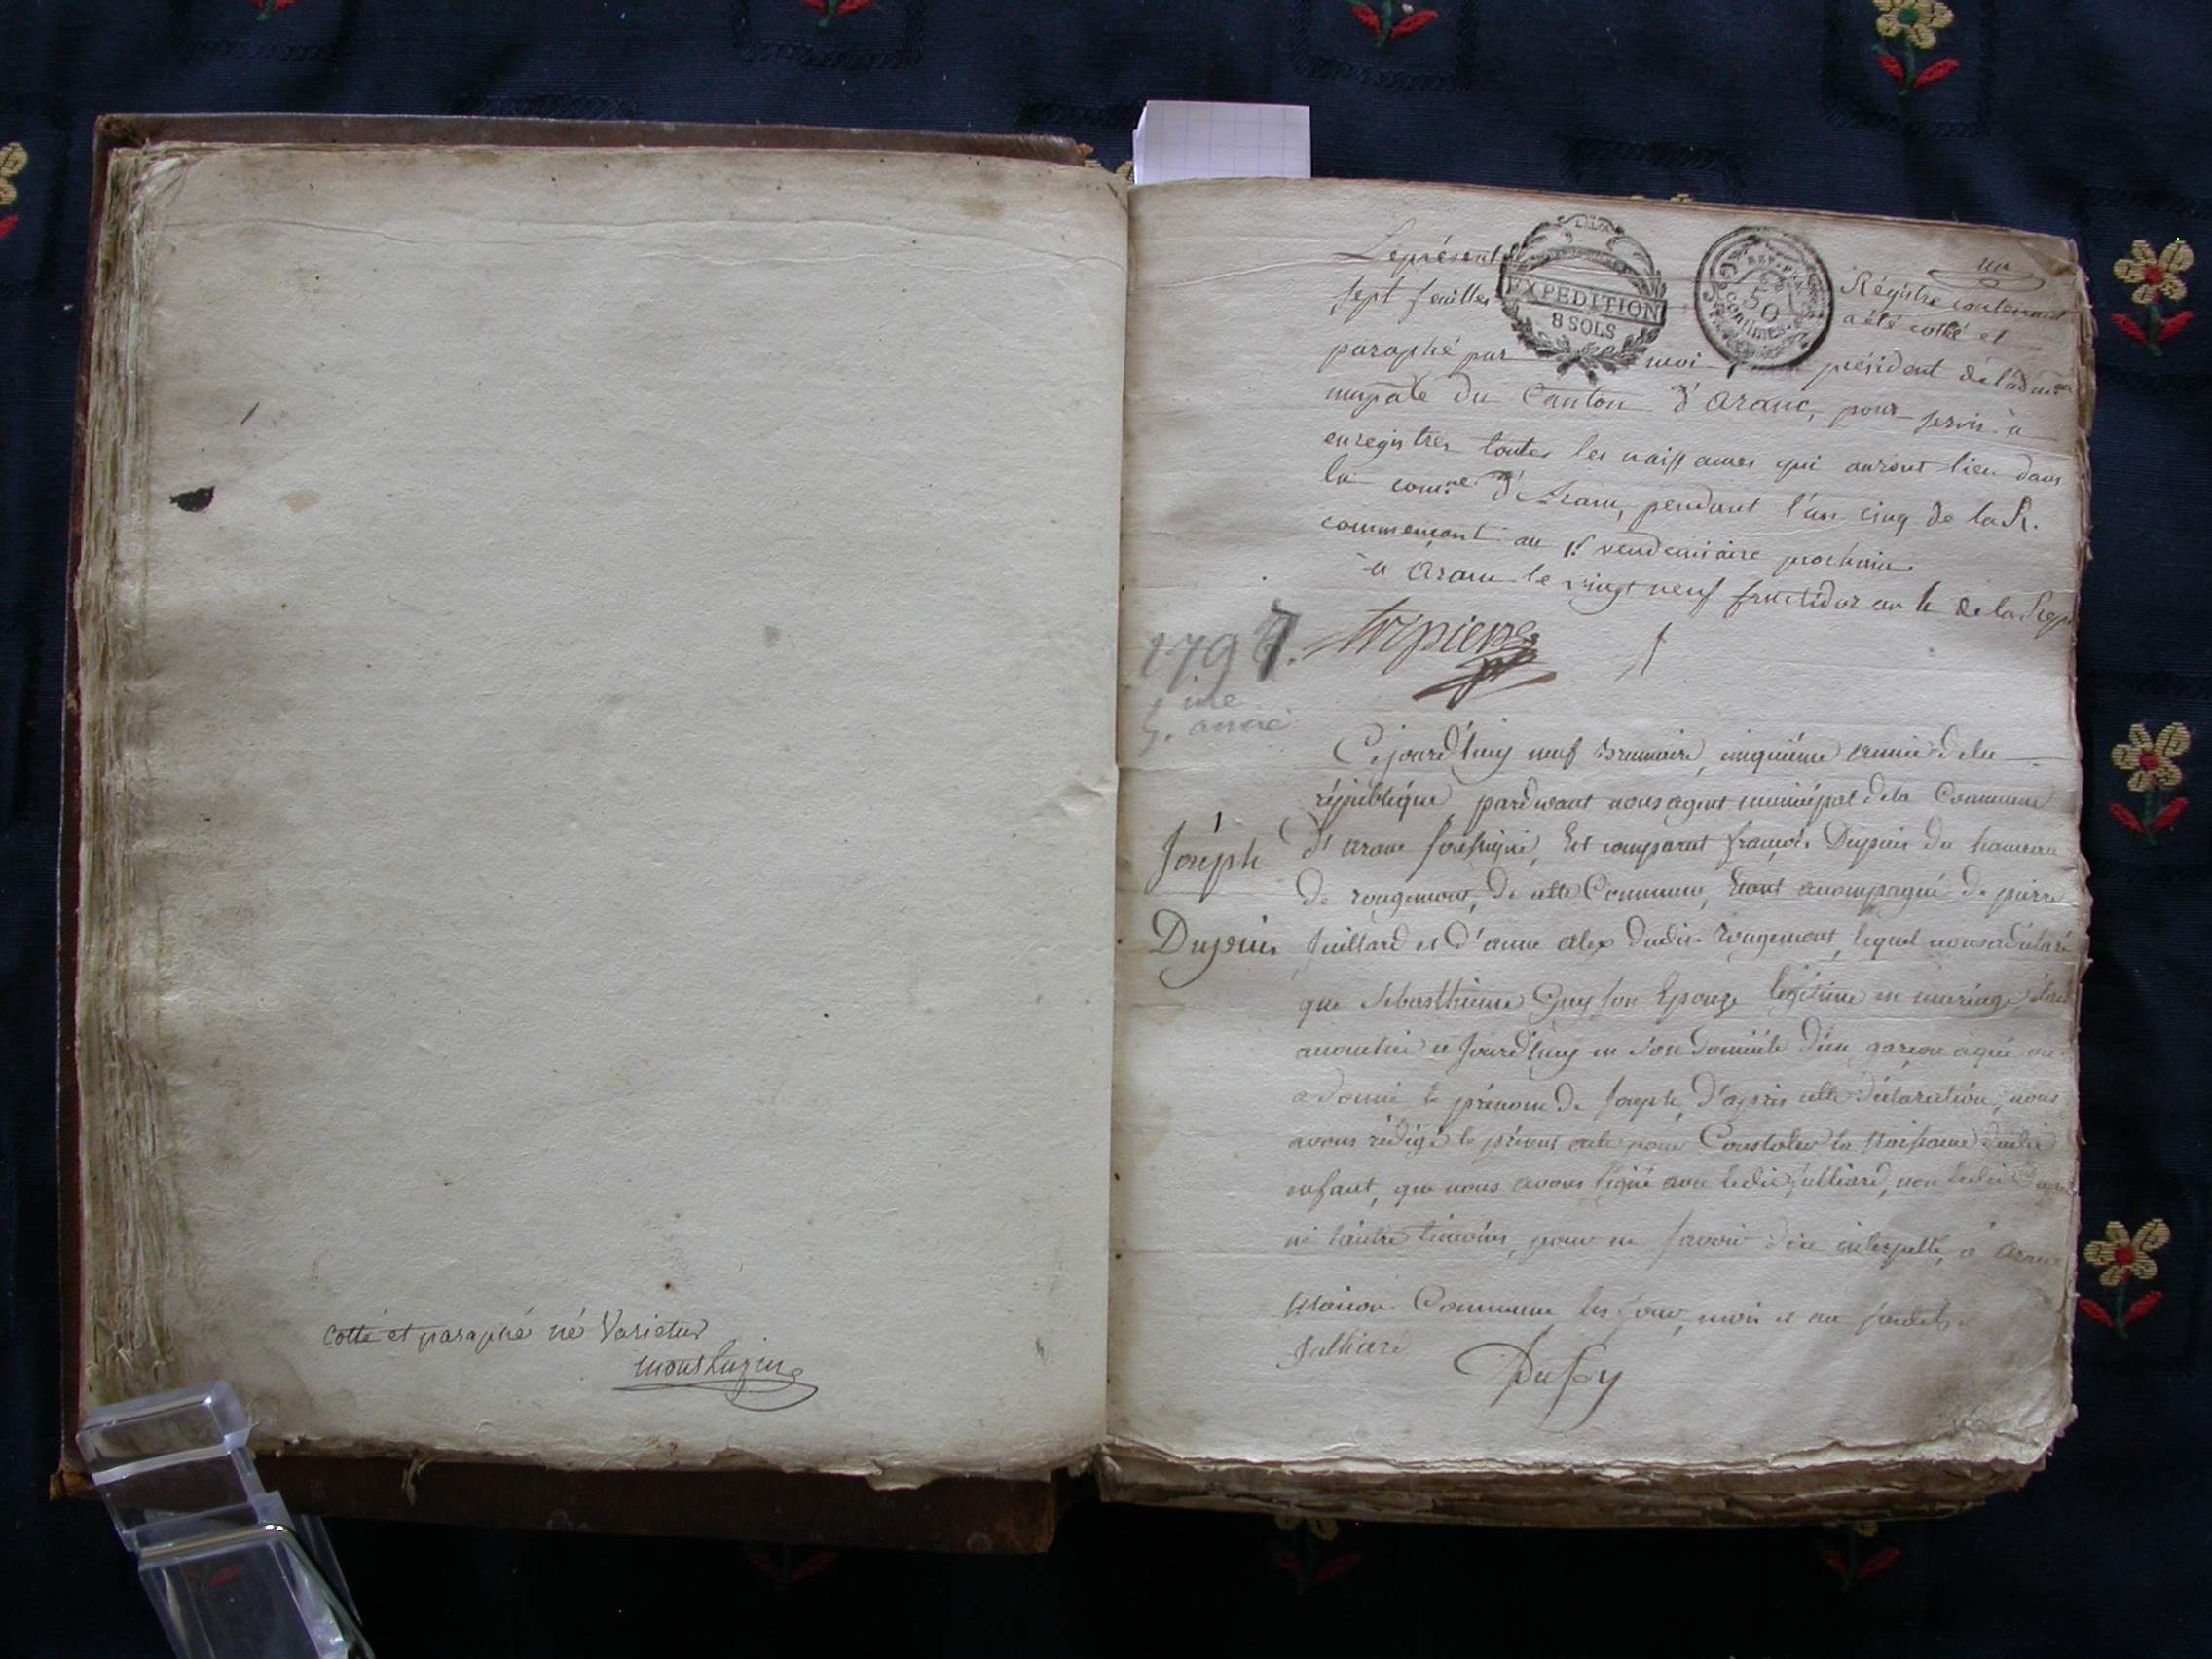 cotté et paraphé né Varietur
un
Le présent Régistre contenant
sept feuilles a été cotté et
EXPEDITION
8 SOLS
REP. FRA.
50
Centimes
paraphé par moi président de l'adm.on
mupale du Canton d'Aranc, pour servir à
enregistrer toutes les naissances qui auront lieu dans
la com.ne d'Aranc, pendant l'an cinq de la R.
commençant au 1.er vendemiaire prochain.
à Aranc le vingt neuf fructidor an 4 de la Rep.
1797.
5.me année
Cejourd'huy neuf brumaire, cinquième année de la
république, pardevant nous agent municipal de la Commune
d'aranc soussigné, Est comparut françois Dupuis du hameau
Joseph
de rougemont, de cette Commune, Etant acompagné de pierre
Dupuis
Juillard et d'anne alex dudit rougemont, lequel nous a déclaré
que Sebasthienne Guy son Epouze légitime en mariage, était
acouchée ce Jourd'huy en son domicile d'un garçon aqui on
a donné le prénom de Joseph, d'après cette déclaration, nous
avons rédigé le présent acte pour Constater la Naissance dudit
enfant, que nous avons signé avec ledit Julliard, non ledit
ni l'autre témoins, pour ne savoir de ce interpellé, à Aranc
Maison Commune les jour, mois et an susdits.
Julliard
Dufsy